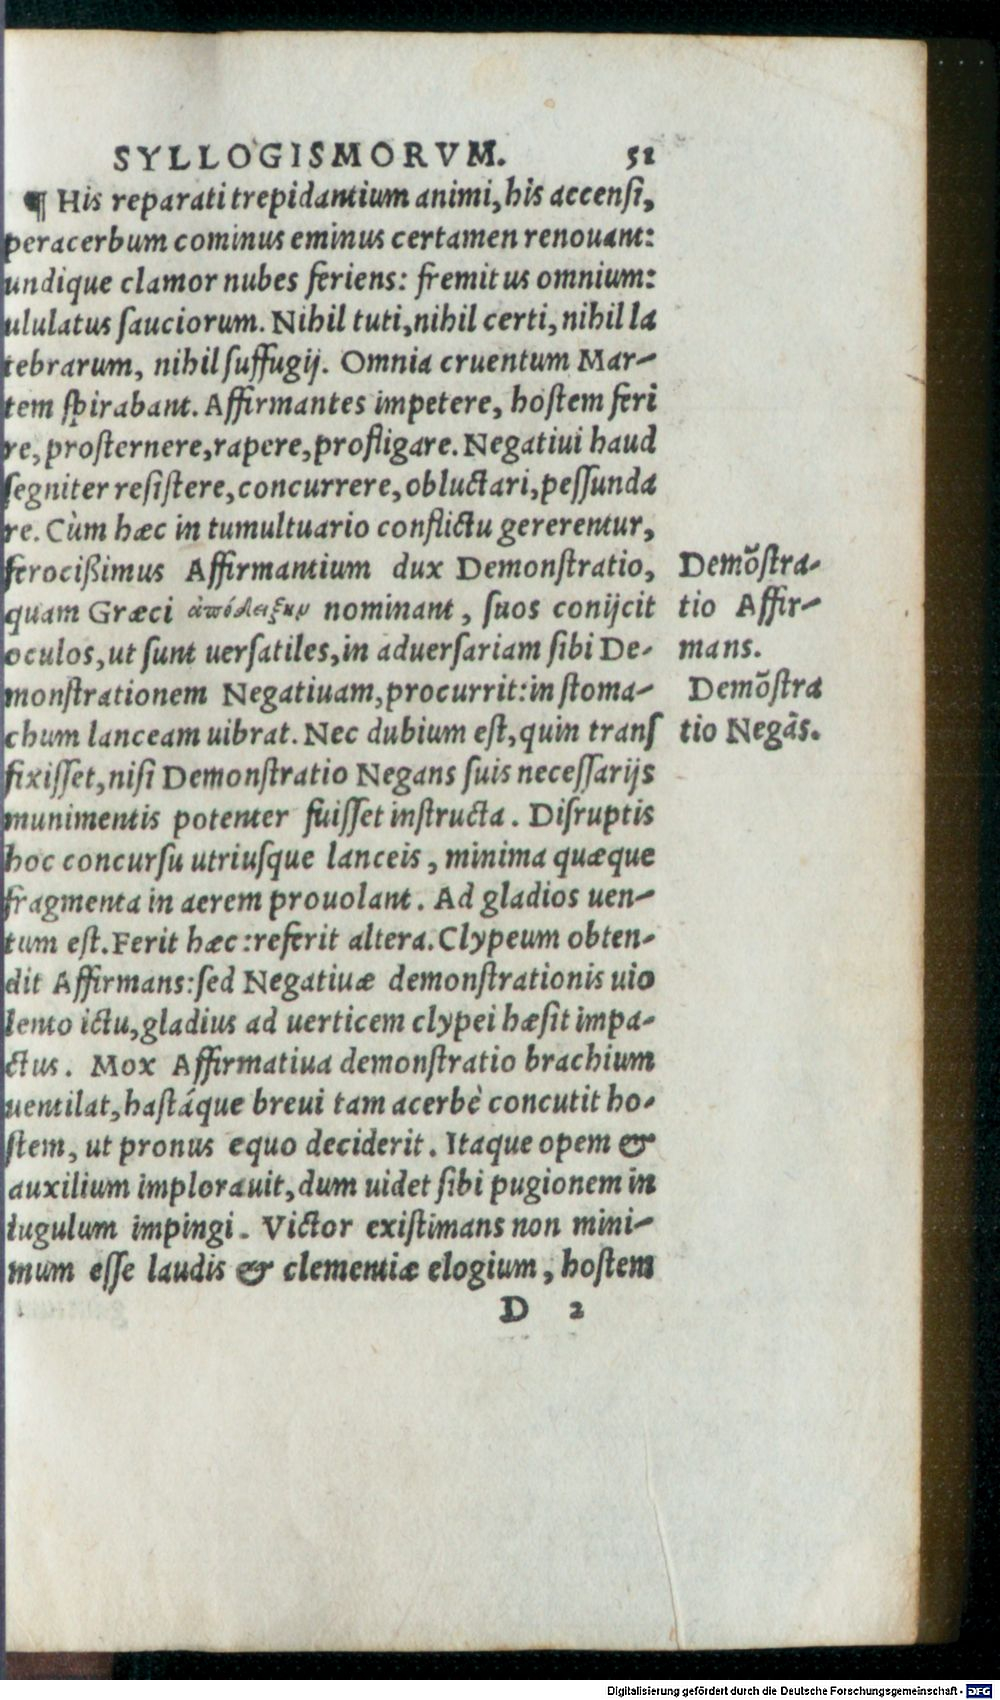 SYLLOGISMORVM. 51
¶ His reparati trepidantium animi, his accensi,
peracerbum cominus eminus certamen renouant:
undique clamor nubes feriens: fremitus omnium:
ululatus sauciorum. Nihil tuti, nihil certi, nihil la
tebrarum, nihil suffugij. Omnia cruentum Mar-
tem spirabant. Affirmantes impetere, hostem feri
re, prosternere, rapere, profligare. Negatiui haud
segniter resistere, concurrere, obluctari, pessunda
re. Cùm hæc in tumultuario conflictu gererentur,
ferocißimus Affirmantium dux Demonstratio,
quam Græci ἀπόδειξιν nominant, suos conijcit
oculos, ut sunt uersatiles, in aduersariam sibi De-
monstrationem Negatiuam, procurrit: in stoma-
chum lanceam uibrat. Nec dubium est, quin trans
fixisset, nisi Demonstratio Negans suis necessarijs
munimentis potenter fuisset instructa. Disruptis
hoc concursu utriusque lanceis, minima quæque
fragmenta in aerem prouolant. Ad gladios uen-
tum est. Ferit hæc: referit altera. Clypeum obten-
dit Affirmans: sed Negatiuæ demonstrationis uio
lento ictu, gladius ad uerticem clypei hæsit impa-
ctus. Mox Affirmatiua demonstratio brachium
uentilat, hastáque breui tam acerbè concutit ho-
stem, ut pronus equo deciderit. Itaque opem &
auxilium implorauit, dum uidet sibi pugionem in
iugulum impingi. Victor existimans non mini-
mum esse laudis & clementiæ elogium, hostem
D 2
Demõstra-
tio Affir-
mans.
Demõstra
tio Negãs.
Digitalisierung gefördert durch die Deutsche Forschungsgemeinschaft - DFG